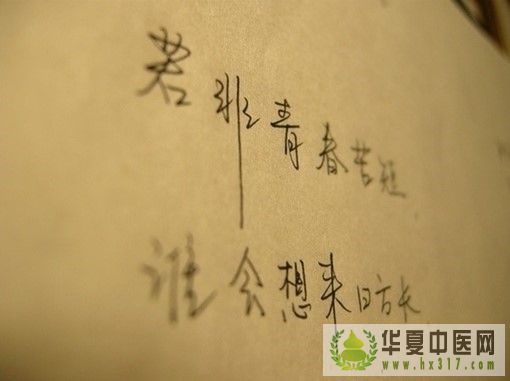 若非青春苦短
谁会想来日方长
华夏中医网
www.hx317.com